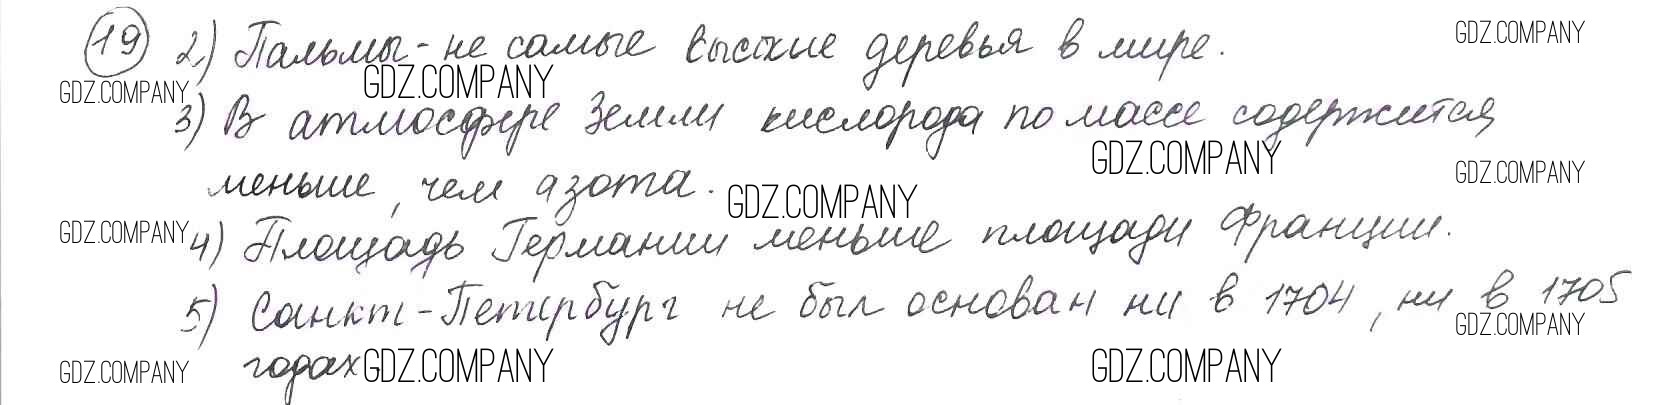 19 2) Пальмы - не самые высокие деревья в мире. GDZ.COMPANY
GDZ.COMPANY GDZ.COMPANY
3) В атмосфере Земли кислорода по массе содержится
GDZ.COMPANY GDZ.COMPANY
меньше, чем азота. GDZ.COMPANY
GDZ.COMPANY 4) Площадь Германии меньше площади Франции.
5) Санкт-Петербург не был основан ни в 1704, ни в 1705
GDZ.COMPANY
GDZ.COMPANY годах. GDZ.COMPANY GDZ.COMPANY